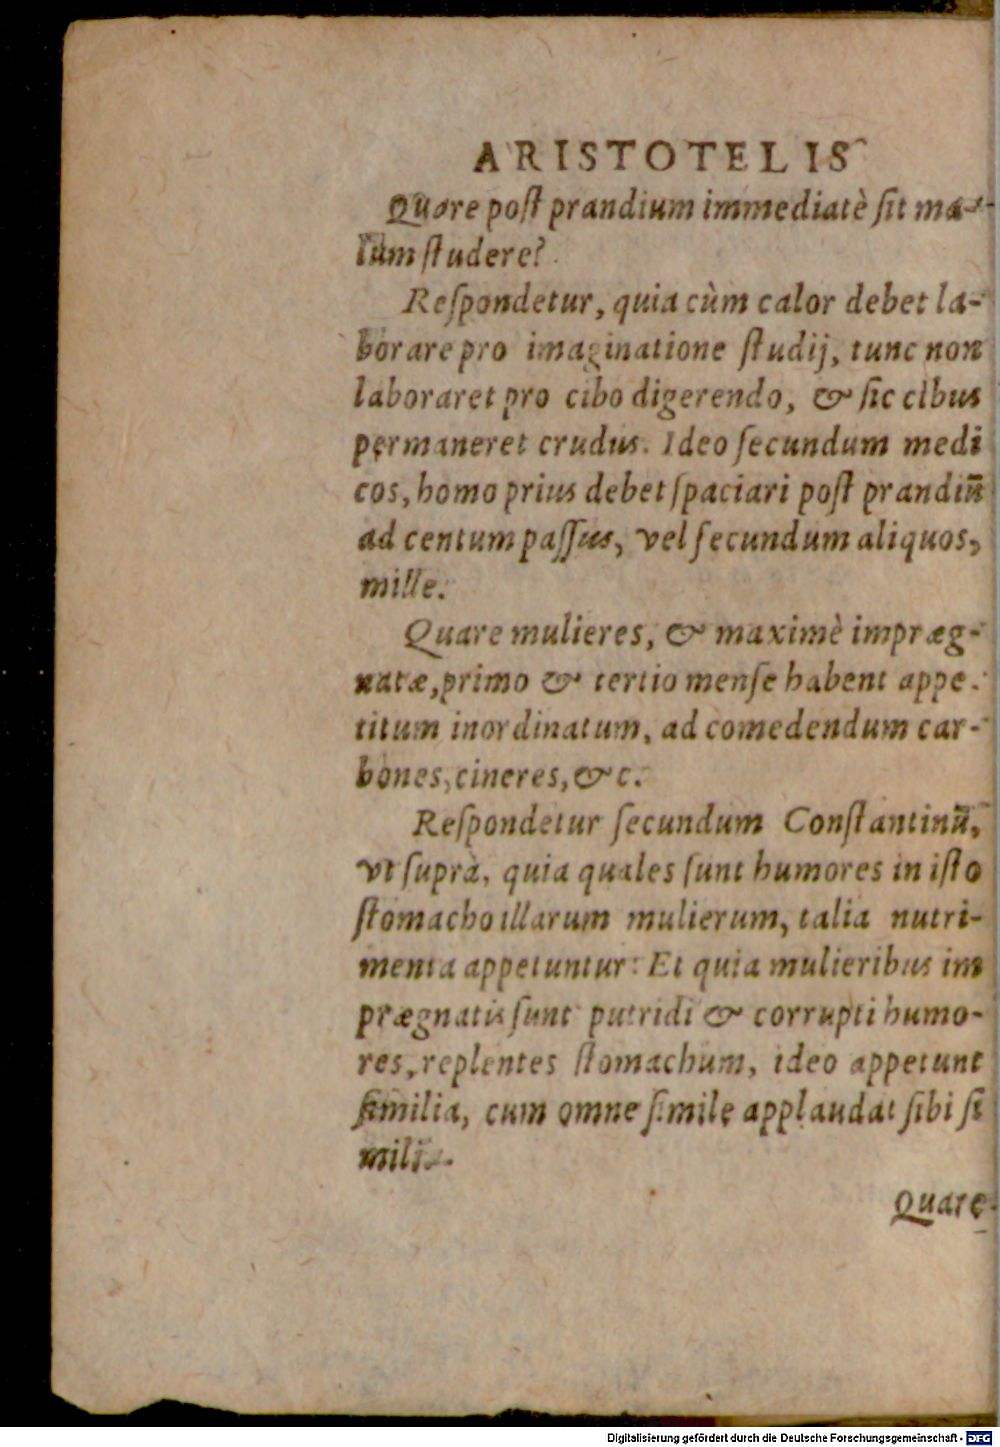 ARISTOTELIS
Quare poſt prandium immediatè ſit ma-
lum ſtudere?
Reſpondetur, quia cùm calor debet la-
borare pro imaginatione ſtudij, tunc non
laboraret pro cibo digerendo, & ſic cibus
permaneret crudus. Ideo ſecundum medi
cos, homo prius debet ſpaciari poſt prandiū
ad centum paſſus, vel ſecundum aliquos,
mille.
Quare mulieres, & maximè impræg-
natæ, primo & tertio menſe habent appe-
titum inordinatum, ad comedendum car-
bones, cineres, &c.
Reſpondetur ſecundum Conſtantinū,
vt ſuprà, quia quales ſunt humores in iſto
ſtomacho illarum mulierum, talia nutri-
menta appetuntur: Et quia mulieribus im
prægnatis ſunt putridi & corrupti humo-
res, replentes ſtomachum, ideo appetunt
ſimilia, cum omne ſimile applaudat ſibi ſi
mili.
Quare
Digitalisierung gefördert durch die Deutsche Forschungsgemeinschaft - DFG